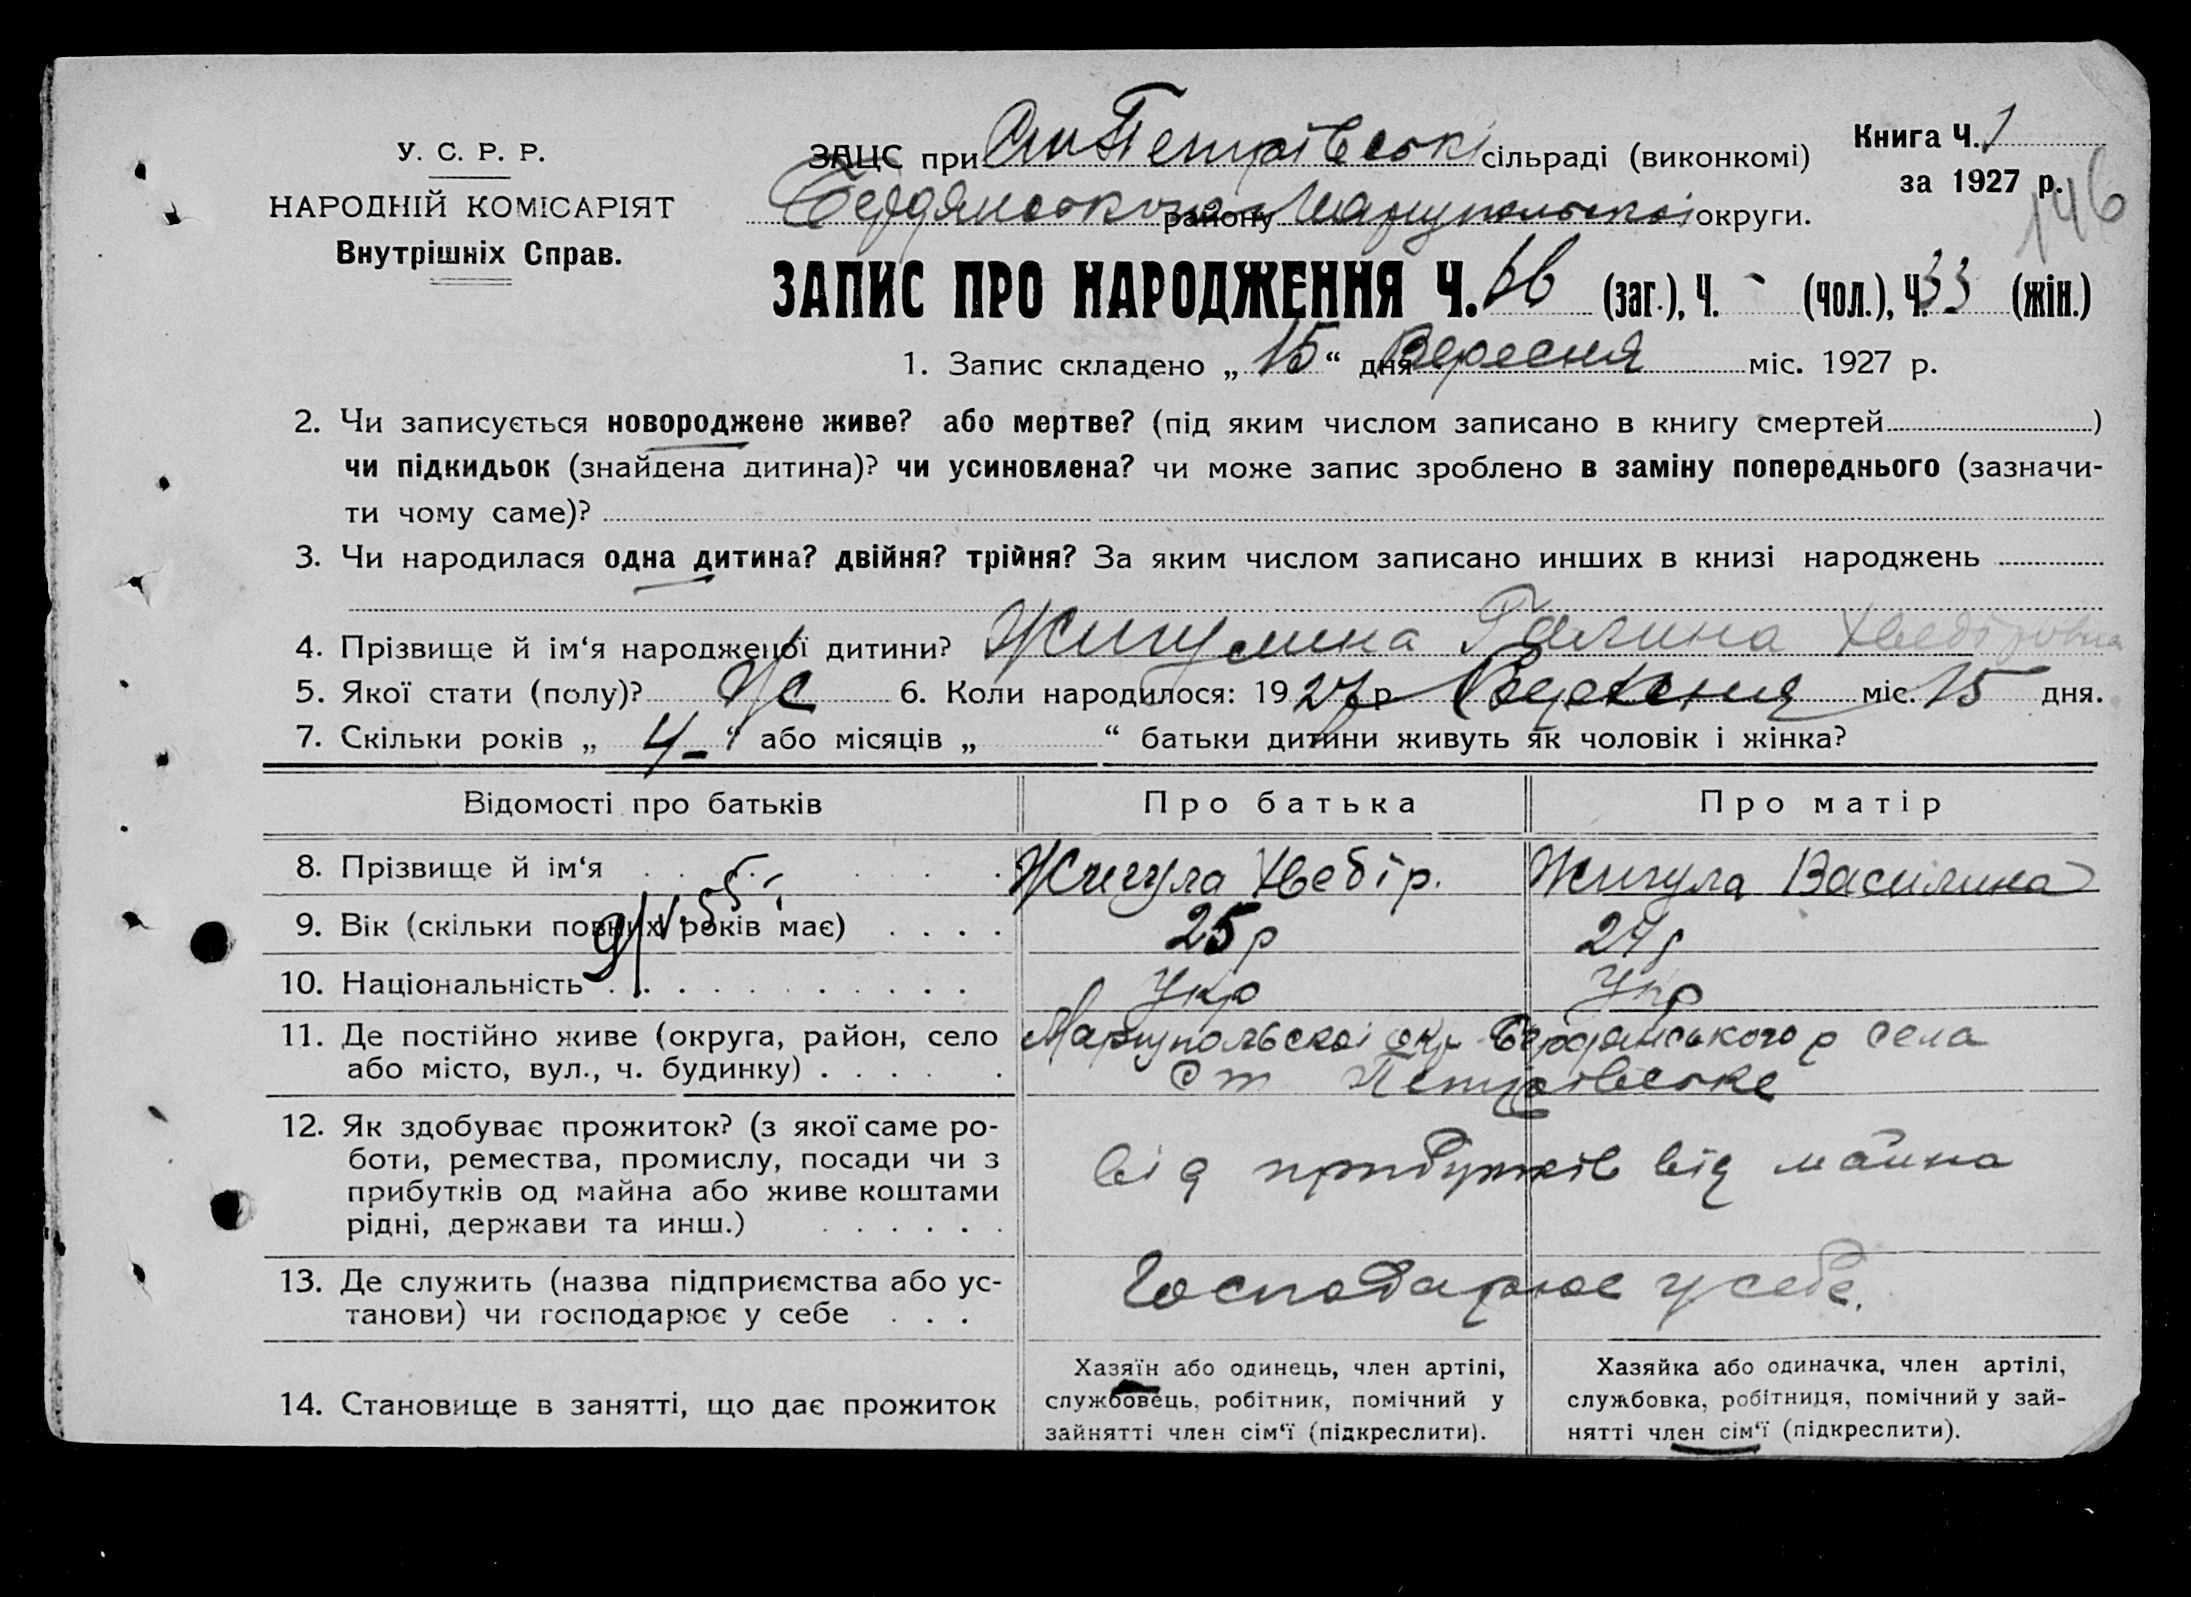 У. С. Р. Р.
НАРОДНІЙ КОМІСАРІЯТ
Внутрішніх Справ.
ЗАЦС при Ст Петрівські сільраді (виконкомі)
Бердянського району Маріупольскої округи.
Книга Ч. 1
за 1927 р.
146
ЗАПИС ПРО НАРОДЖЕННЯ Ч. 66 (заг.), Ч. - (чол.), Ч. 33 (жін.)
1. Запис складено „ 15 “ дня Вересня міс. 1927 р.
2. Чи записується новороджене живе? або мертве? (під яким числом записано в книгу смертей )
чи підкидьок (знайдена дитина)? чи усиновлена? чи може запис зроблено в заміну попереднього (зазначи-
ти чому саме)?
3. Чи народилася одна дитина? двійня? трійня? За яким числом записано инших в книзі народжень
4. Прізвище й ім‘я народженої дитини? Жигулина Галина Хведіровна
5. Якої стати (полу)? Ж 6. Коли народилося: 19 27 р Вересня міс. 15 дня.
7. Скільки років „ 4 - “ або місяців „ “ батьки дитини живуть як чоловік і жінка?
Відомості про батьків Про батька Про матір
8. Прізвище й ім‘я Жигула Хведір. Жигула Василина
9. Вік (скільки повних років має) 25 р 24 р
9/V.55
10. Національність Укр Укр
11. Де постійно живе (округа, район, село Маріупольскої окр Бердянського р села
або місто, вул., ч. будинку) Ст Петрівське
12. Як здобуває прожиток? (з якої саме ро-
боти, ремества, промислу, посади чи з
прибутків од майна або живе коштами
рідні, держави та инш.)
від прибутків від майна
13. Де служить (назва підприємства або ус-
танови) чи господарює у себе
Господарює у себе.
14. Становище в занятті, що дає прожиток
Хазяїн або одинець, член артілі,
службовець, робітник, помічний у
зайнятті член сім‘ї (підкреслити).
Хазяйка або одиначка, член артілі,
службовка, робітниця, помічний у зай-
нятті член сім‘ї (підкреслити).